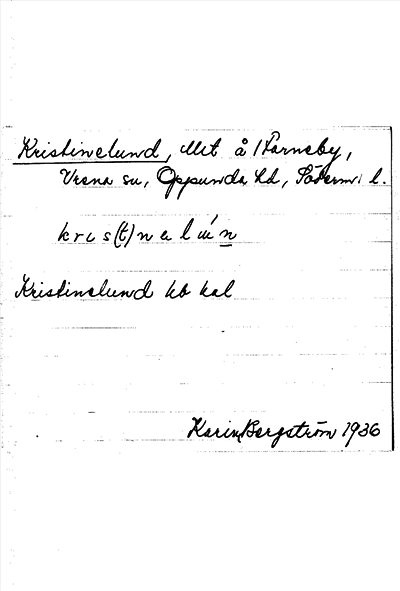 Kristinelund, llht å Harneby,
Vrena sn, Oppunda hd, Söderm. l.
kris(t)nelún
Kristinelund hb kal
Karin Bergström 1936